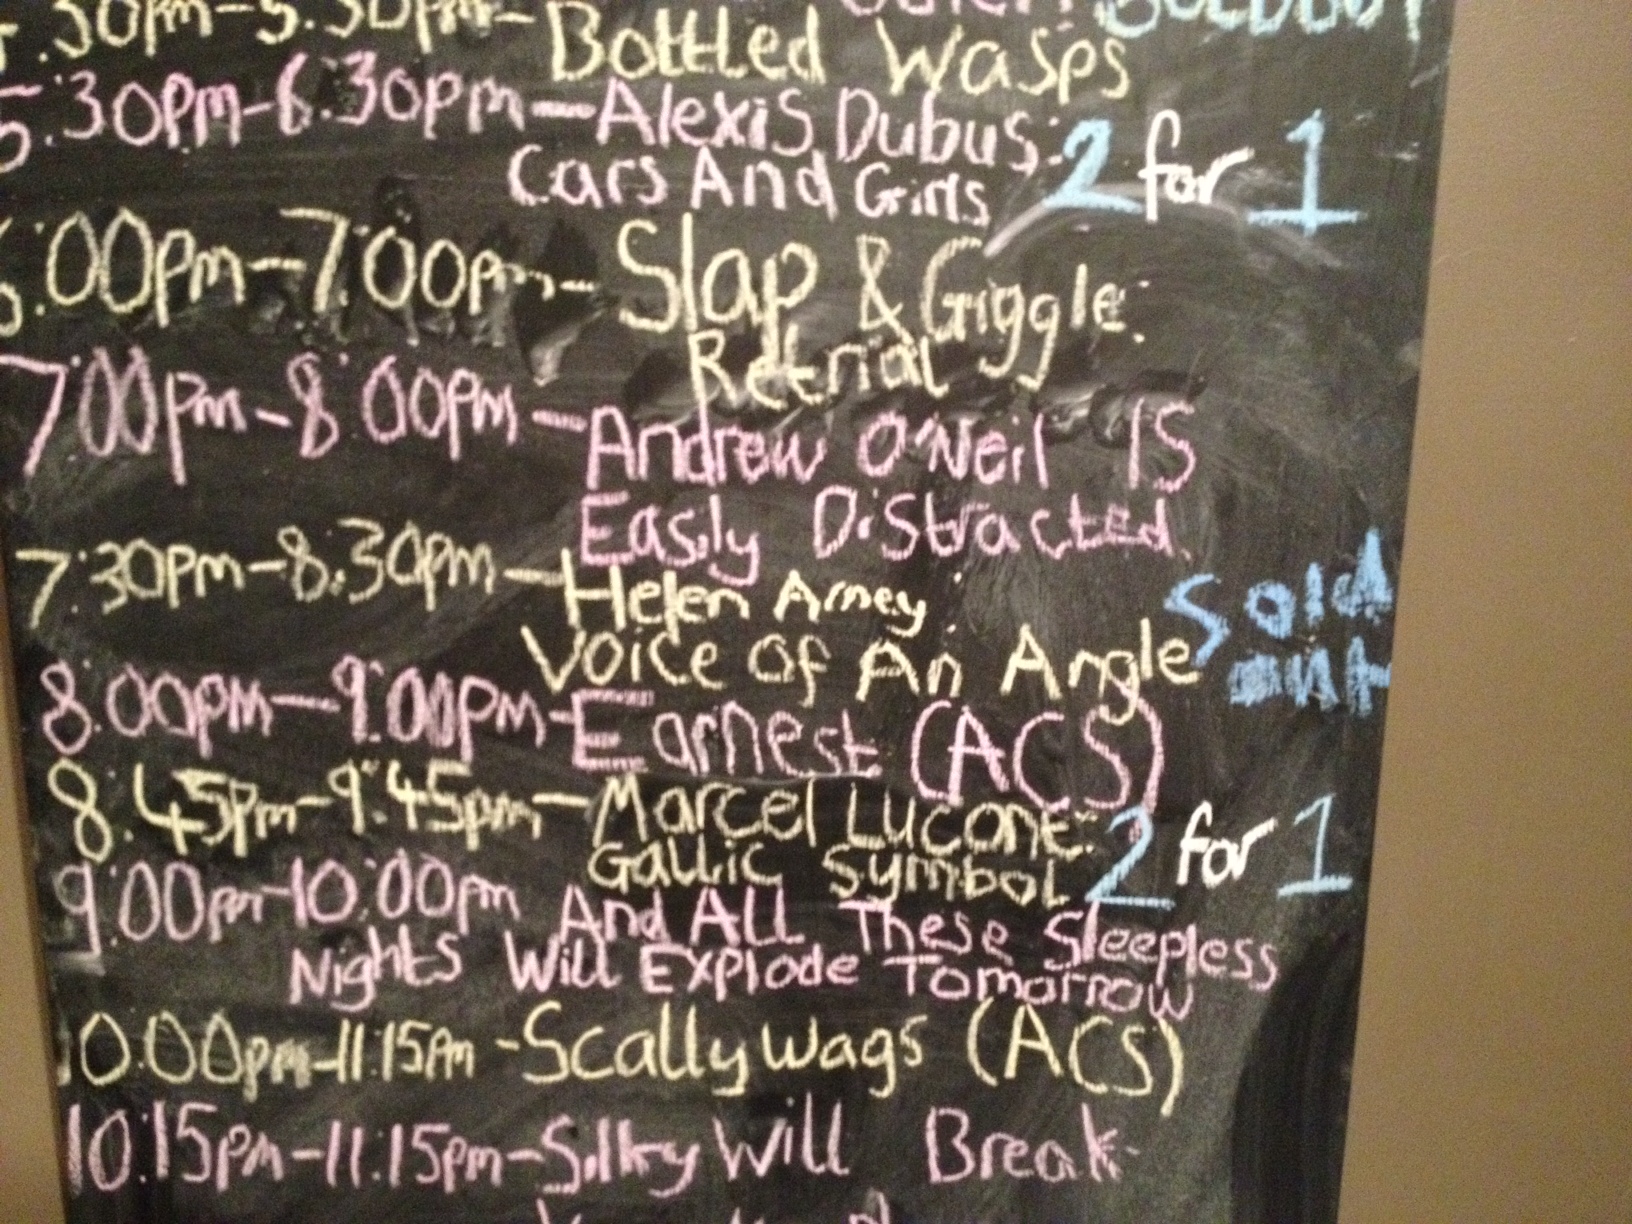 SOLDOUT
.30pm-5.30pm- Bottled Wasps
5:30pm-6.30pm- Alexis Dubus:
Cars And Girls 2 for 1
6:00pm-7:00pm- Slap & Giggle:
Retrial
7:00pm-8:00pm- Andrew O'Neil IS
Easily Distracted.
7:30pm-8:30pm- Helen Arney
Voice of An Angle Sold out
8:00pm-9:00pm- Earnest (ACS)
8:45pm-9:45pm- Marcel Lucont:
Gallic Symbol 2 for 1
9:00pm-10:00pm And All These Sleepless
Nights Will Explode Tomorrow
10:00pm-11:15pm -Scallywags (ACS)
10:15pm-11:15pm-Silky Will Break